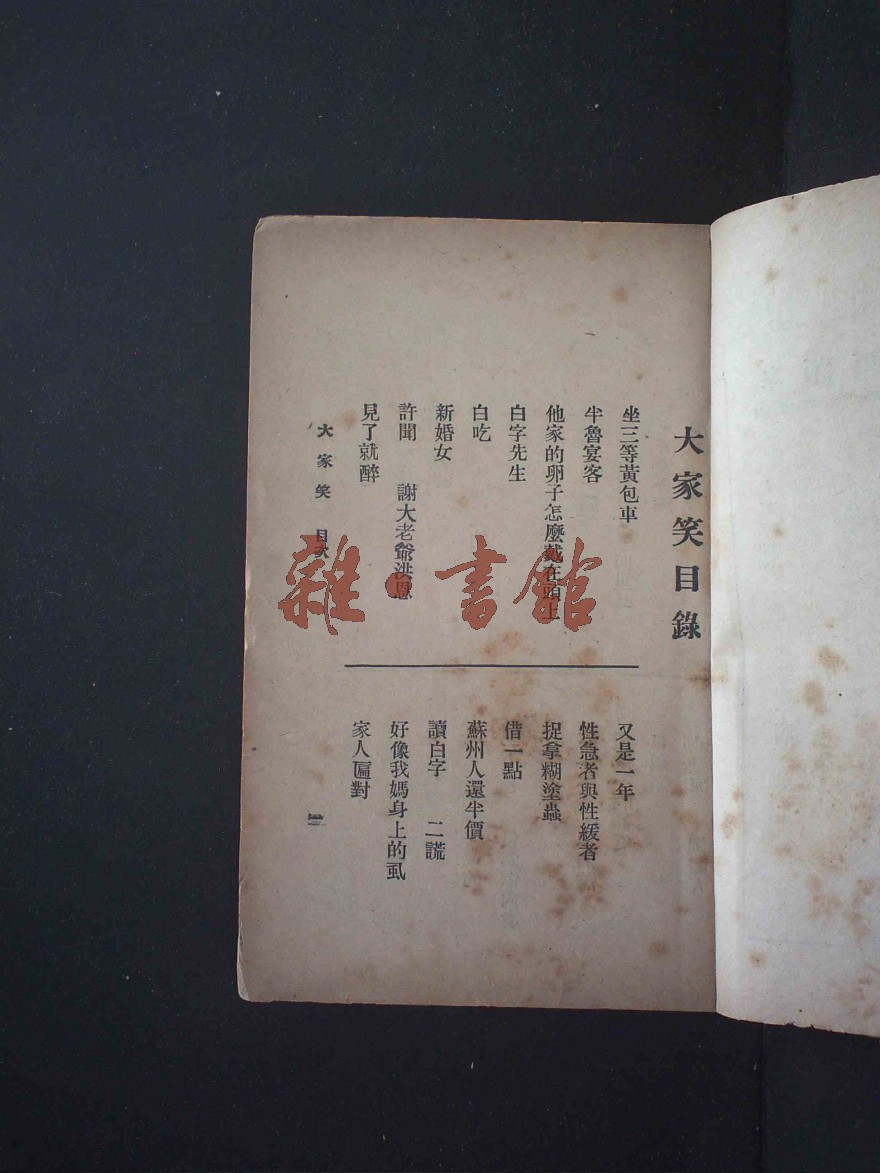 大家笑目錄
坐三等黃包車
半魯宴客
他家的卵子怎麼戴在頭上
白字先生
白吃
新婚女
許聞 謝大老爺洪恩
見了就醉
又是一年
性急者與性緩者
捉拿糊塗蟲
借一點
蘇州人還半價
讀白字 二謊
好像我媽身上的虱
家人匾對
大家笑 目次
雜·書館